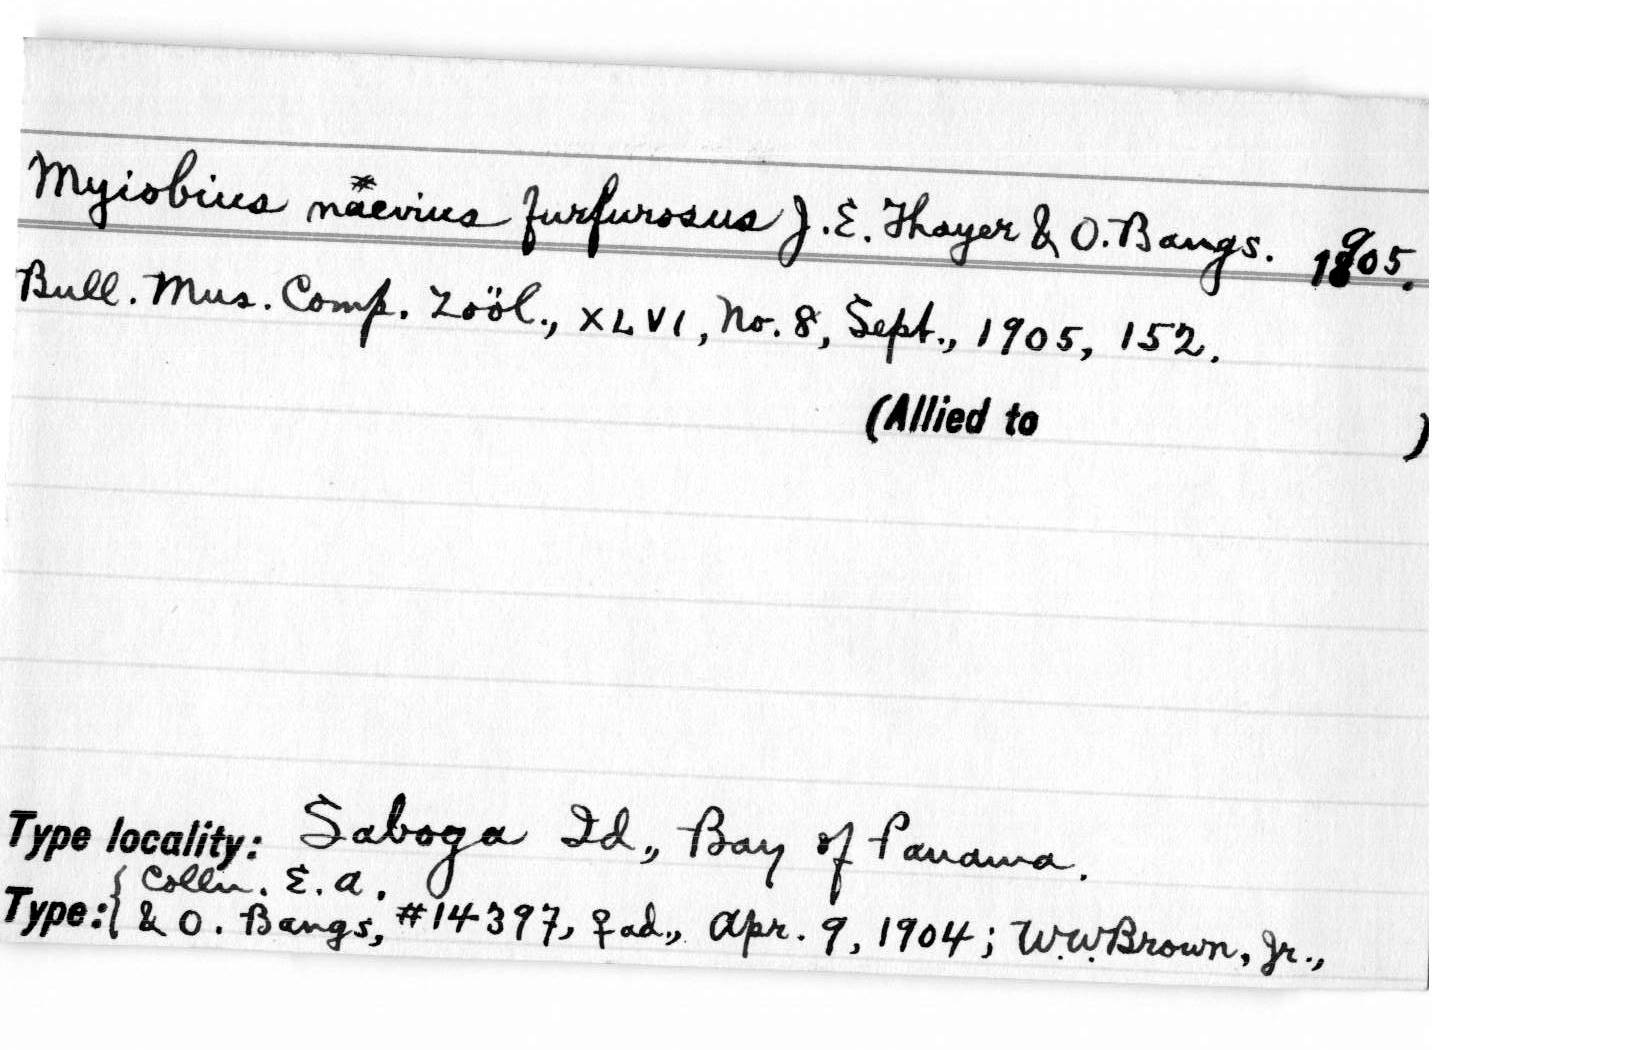 Myiobius naevius* furfurosus J. E. Thayer & O. Bangs. 1905.
Bull. Mus. Comp. Zoöl., XLVI, No. 8, Sept., 1905, 152.
(Allied to )
Type locality: Saboga Id., Bay of Panama.
Type: { Colln. E. A.
& O. Bangs, #14397, ♀ ad., Apr. 9, 1904; W.W. Brown, Jr.,